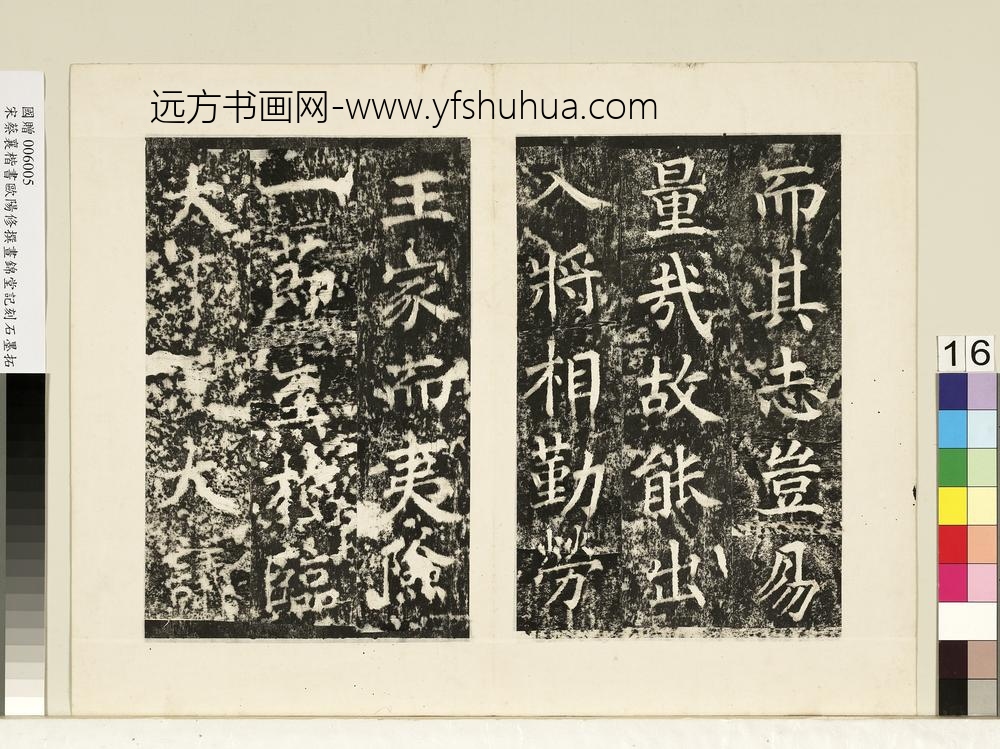 远方书画网-www.yfshuhua.com
國贈 006005
宋蔡襄楷書歐陽修撰晝錦堂記刻石墨拓
而其志豈易
量哉故能出
入將相勤勞
王家而夷險
一節至扵臨
大事大議
16